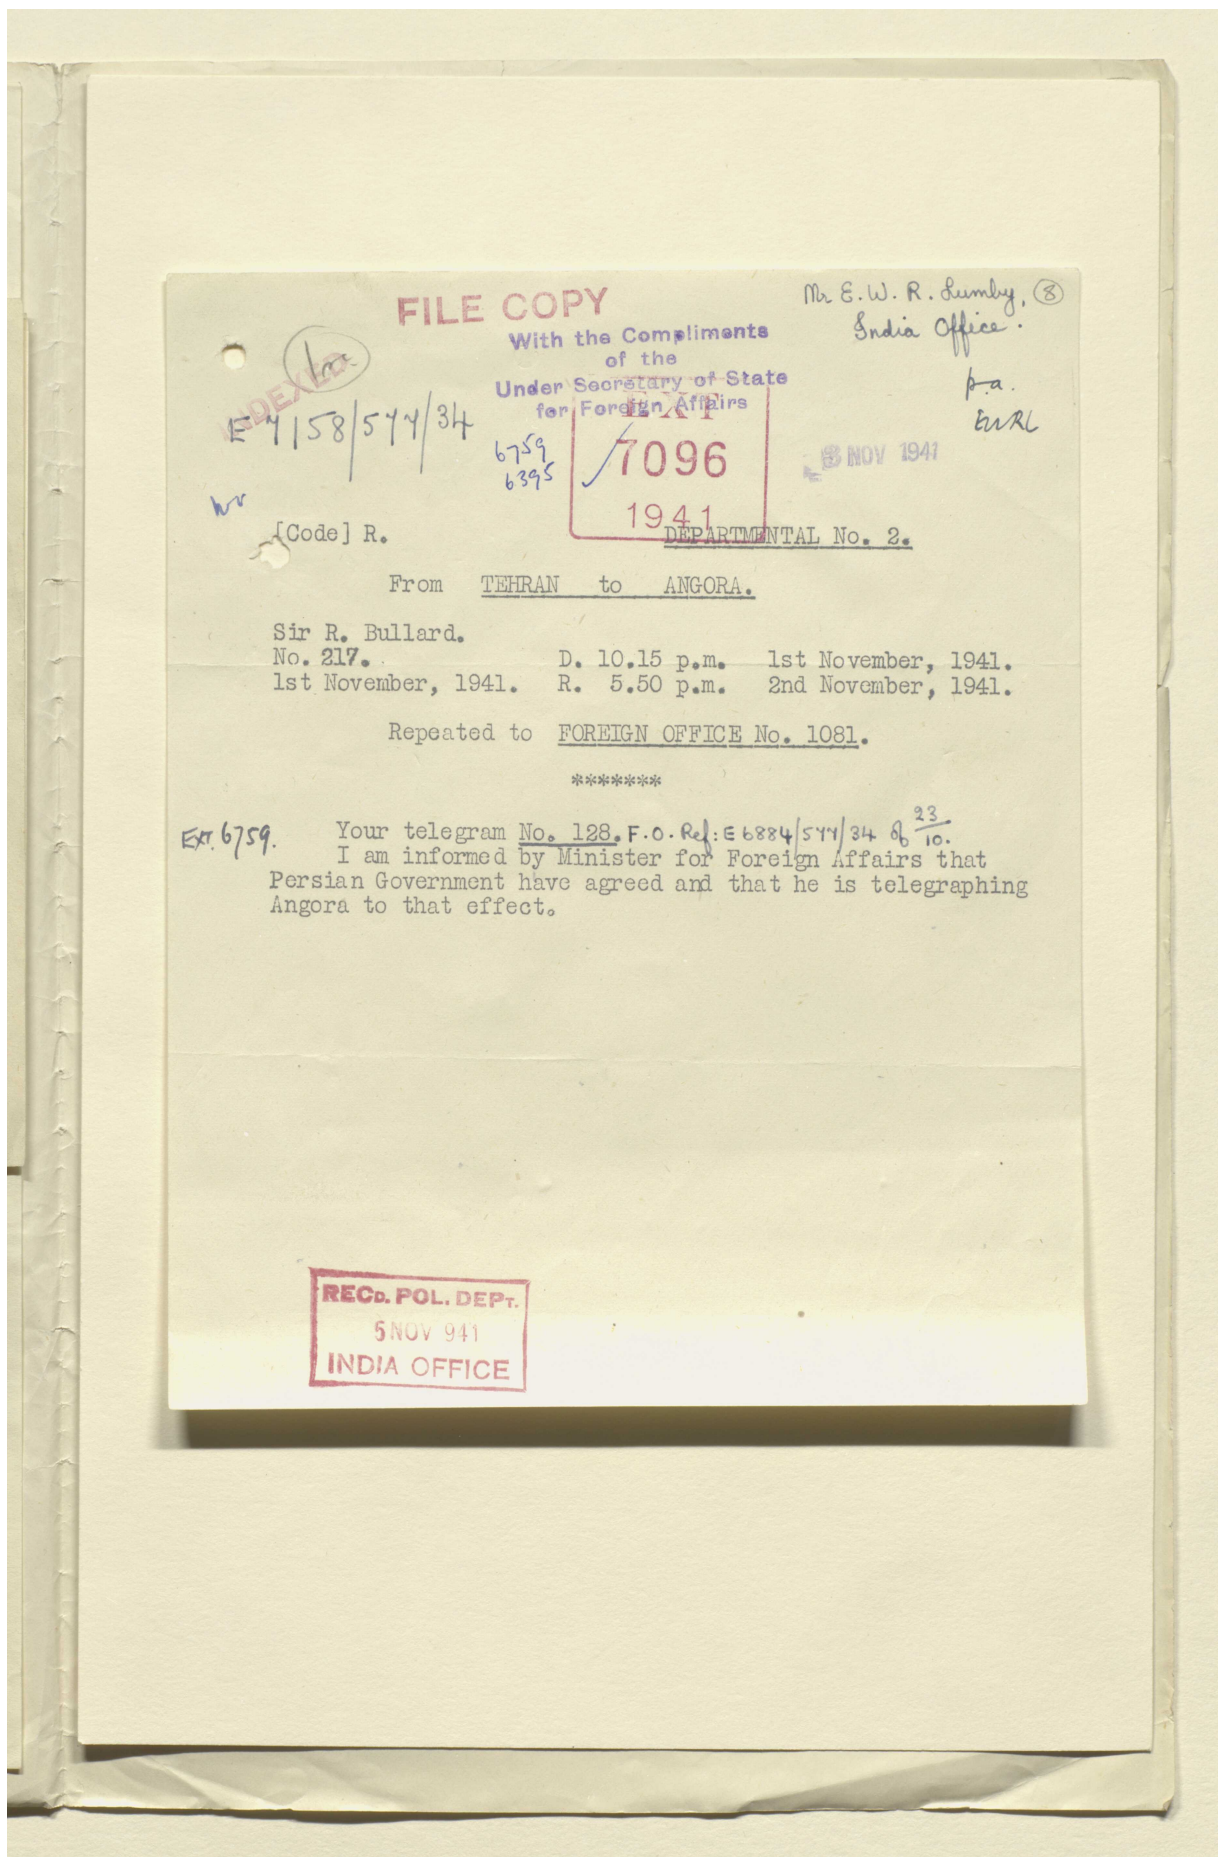 FILE COPY
Mr E. W. R. Lumby, 8
India Office.
With the Compliments
of the
Under Secretary of State
for Foreign Affairs
INDEXED
p.a.
EWRL
E 7158/577/34
6759
6395
EXT
7096
1941
NOV 1941
[Code] R.
DEPARTMENTAL No. 2.
From TEHRAN to ANGORA.
Sir R. Bullard.
No. 217. D. 10.15 p.m. 1st November, 1941.
1st November, 1941. R. 5.50 p.m. 2nd November, 1941.
Repeated to FOREIGN OFFICE No. 1081.
*******
EXT. 6759. Your telegram No. 128. F.O. Ref: E 6884/577/34 of 23/10.
I am informed by Minister for Foreign Affairs that
Persian Government have agreed and that he is telegraphing
Angora to that effect.
RECD. POL. DEPT.
5 NOV 941
INDIA OFFICE